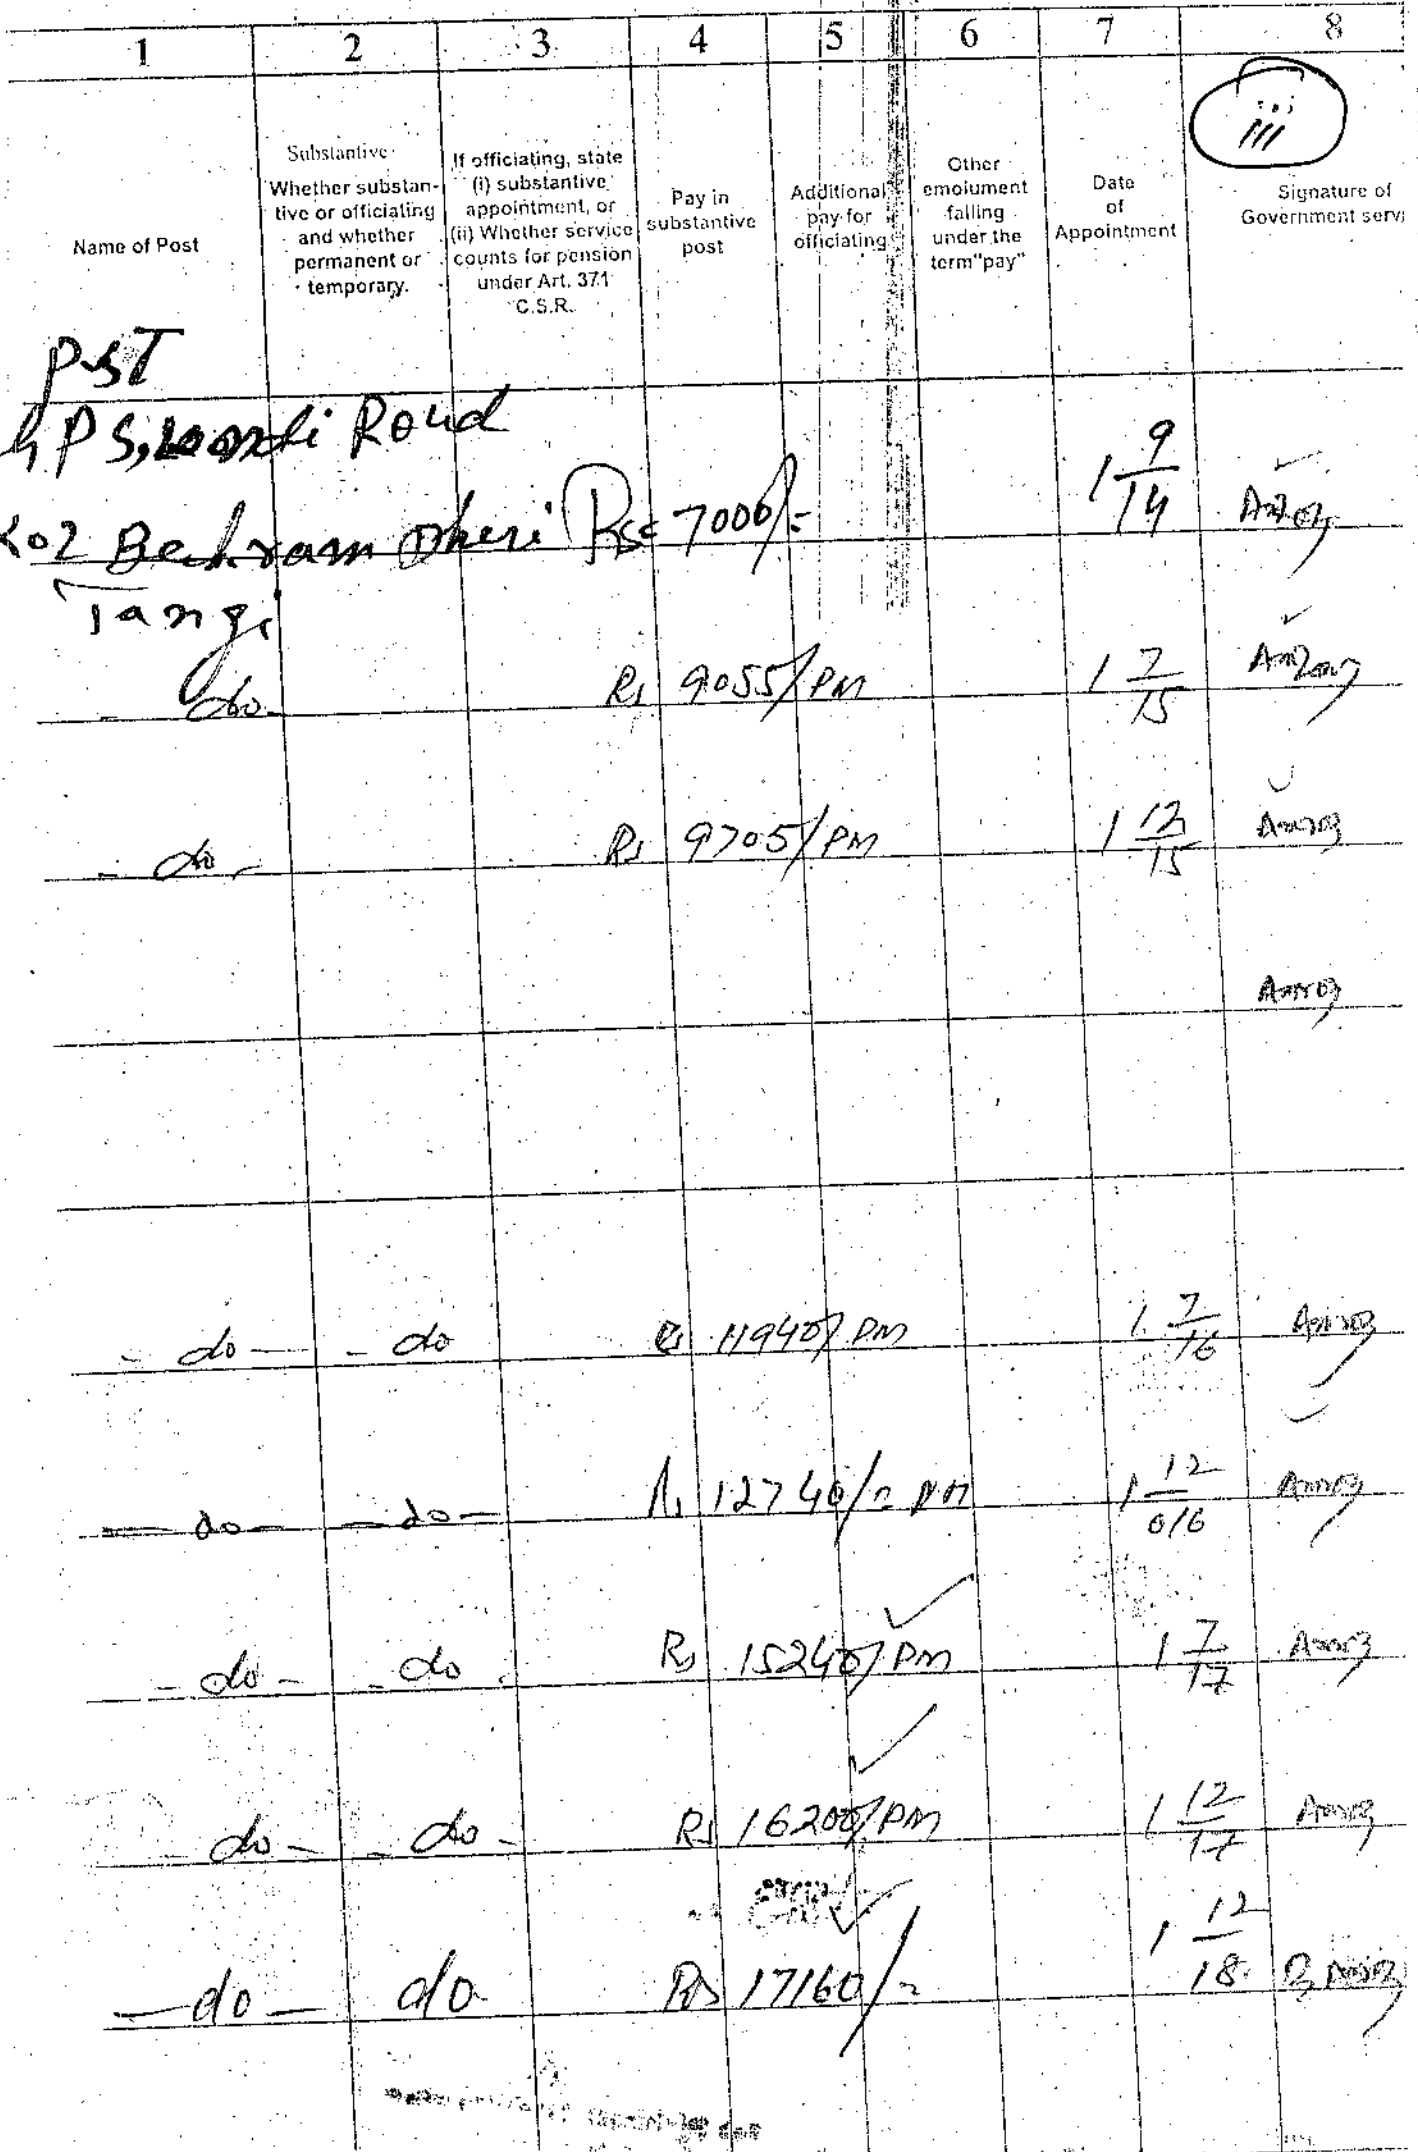 1 2 3 4 5 6 7 8
iii
Name of Post
Substantive
Whether substan-
tive or officiating
and whether
permanent or
temporary.
If officiating, state
(i) substantive
appointment, or
(ii) Whether service
counts for pension
under Art. 371
C.S.R.
Pay in
substantive
post
Additional
pay for
officiating
Other
emolument
falling
under the
term"pay"
Date
of
Appointment
Signature of
Government serv
PST
GPS, Road
Behram Dheri Rs= 7000/= 1 9/14
Tangi
do Rs 9055/PM 1 7/15
- do - Rs 9705/PM 1 12/15
- do - - do Rs 11940/PM 1 7/16
- do - - do - Rs 12740/= PM 1 12/016
- do - - do - Rs 15240/PM 1 7/17
do - - do - Rs 16200/PM 1 12/17
- do - do Rs 17160/= 1 12/18